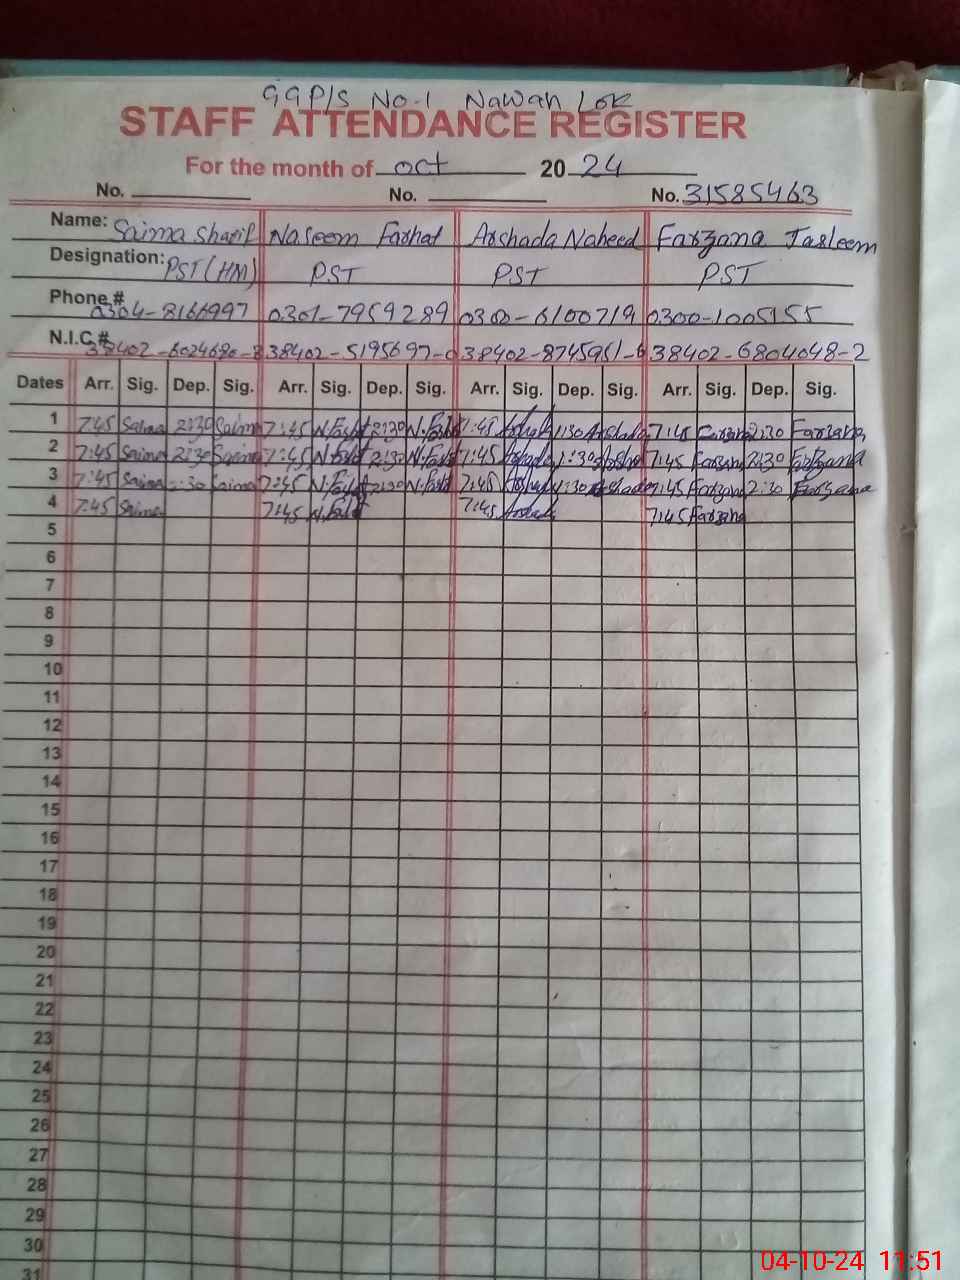 GGP/S No-1 Nawan Lok
STAFF ATTENDANCE REGISTER
For the month of Oct 2024
No. No. No. 31585463
Name: Saima Sharif Naseem Farhat Arshada Naheed Farzana Tasleem
Designation: PST (HM) PST PST PST
Phone # 0304-8166997 0301-7959289 0300-6100719 0300-1005155
N.I.C.# 38402-6024680-8 38402-5195697-0 38402-8745951-6 38402-6804048-2
Dates Arr. Sig. Dep. Sig. Arr. Sig. Dep. Sig. Arr. Sig. Dep. Sig. Arr. Sig. Dep. Sig.
1 7:45 Saima 2:30 Saima 7:45 N.Farhat 2:30 N.Farhat 7:45 Arshada 1:30 Arshada 7:45 Farzana 2:30 Farzana
2 7:45 Saima 2:30 Saima 7:45 N.Farhat 2:30 N.Farhat 7:45 Arshada 1:30 Arshada 7:45 Farzana 2:30 Farzana
3 7:45 Saima 2:30 Saima 7:45 N.Farhat 2:30 N.Farhat 7:45 Arshada 1:30 Arshada 7:45 Farzana 2:30 Farzana
4 7:45 Saima 7:45 N.Farhat 7:45 Arshada 7:45 Farzana
5
6
7
8
9
10
11
12
13
14
15
16
17
18
19
20
21
22
23
24
25
26
27
28
29
30
31
04-10-24 11:51